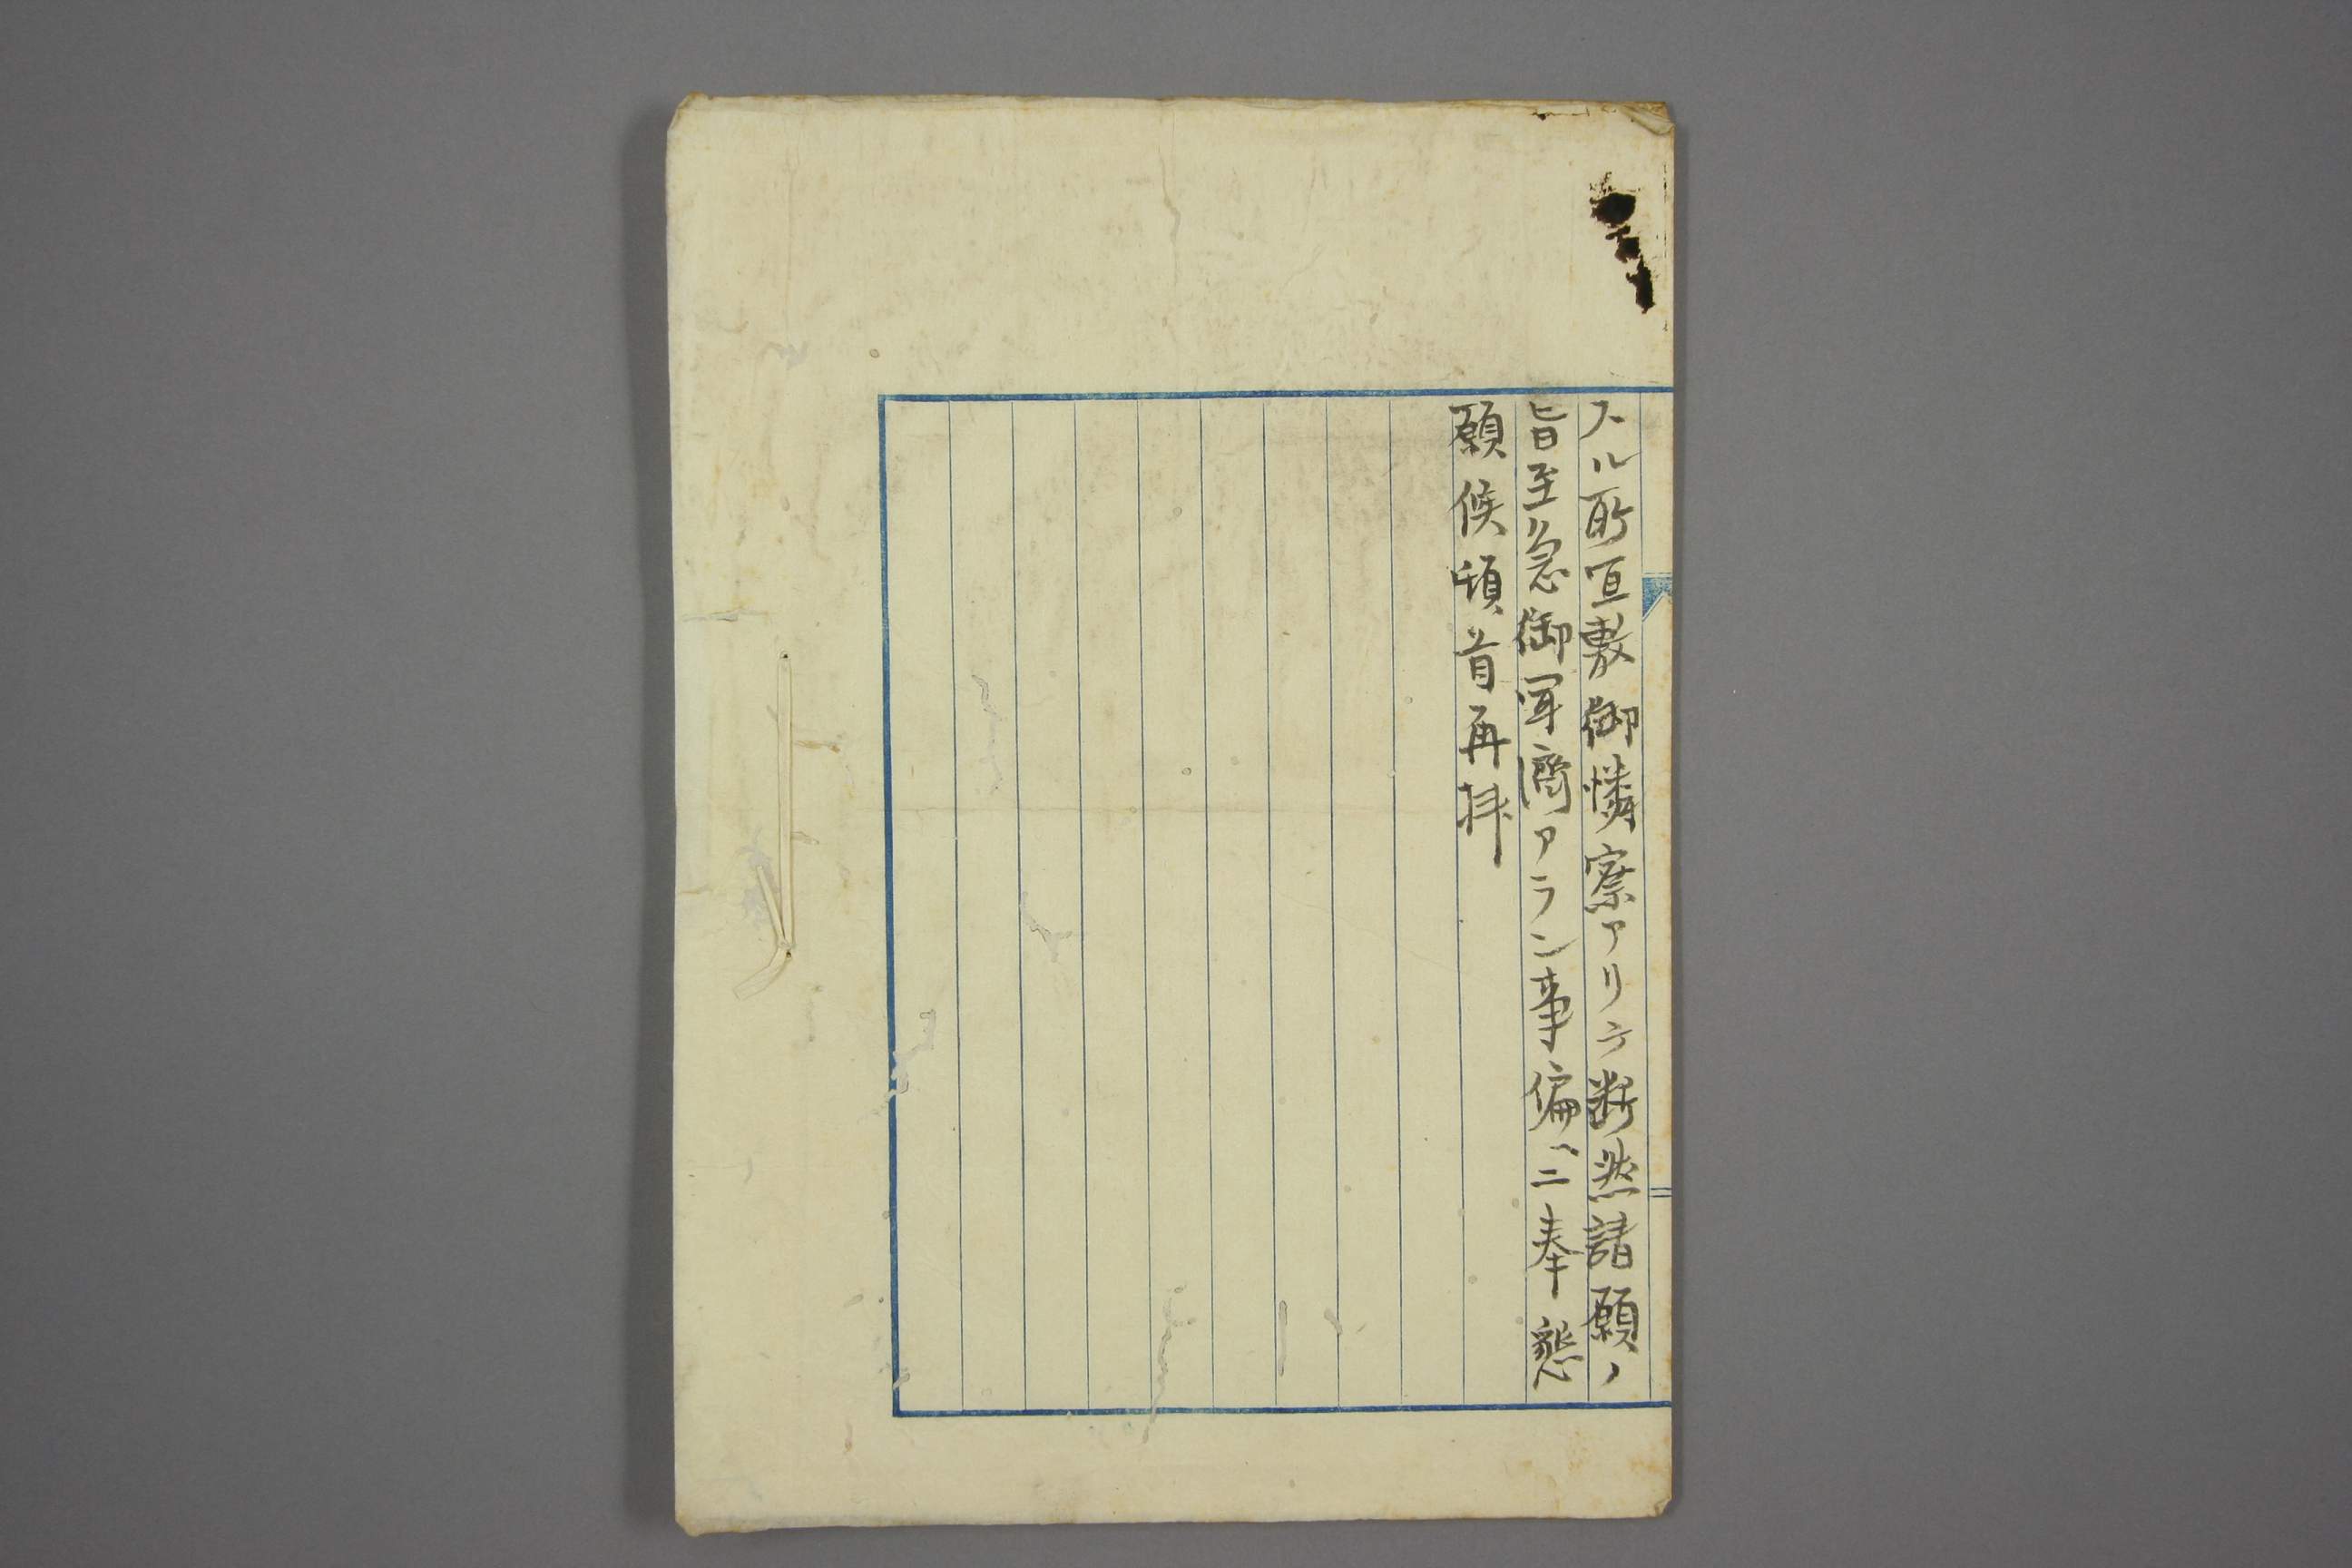 スル所宜敷御憐察アリテ断然請願ノ
旨至急御聞濟アラン事偏ヘニ奉懇
願候頓首再拝